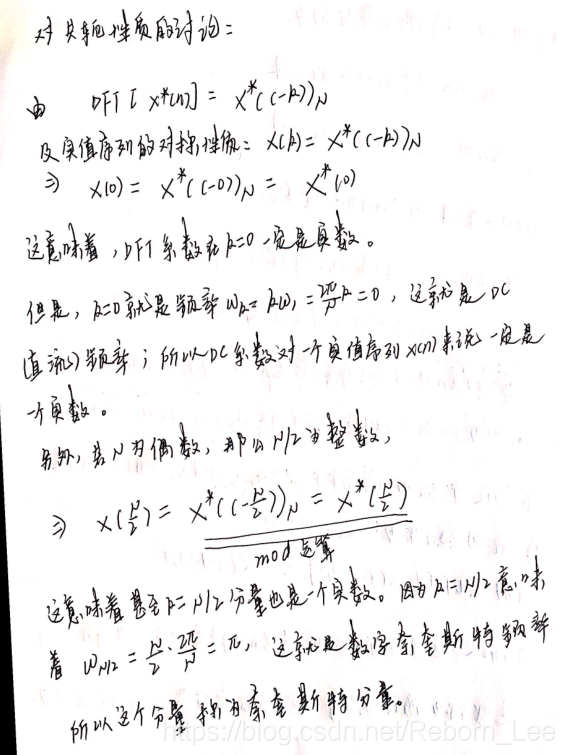 对共轭性质的讨论：
由 DFT[x*(n)] = X*((-k))_N
及实值序列的对称性质：X(k) = X*((-k))_N
⇒ X(0) = X*((-0))_N = X*(0)
这意味着，DFT系数在k=0一定是实数。
但是，k=0就是频率ω_k = kω_1 = 2π/N k = 0，这就是DC
(直流)频率；所以DC系数对一个实值序列x(n)来说一定是
一个实数。
另外，若N为偶数，那么N/2为整数，
⇒ X(N/2) = X*((-N/2))_N = X*(N/2)
mod运算
这意味着甚至k=N/2分量也是一个实数。因为k=N/2意味
着 ω_N/2 = N/2 · 2π/N = π，这就是数字奈奎斯特频率
所以这个分量称为奈奎斯特分量。
https://blog.csdn.net/Reborn_Lee